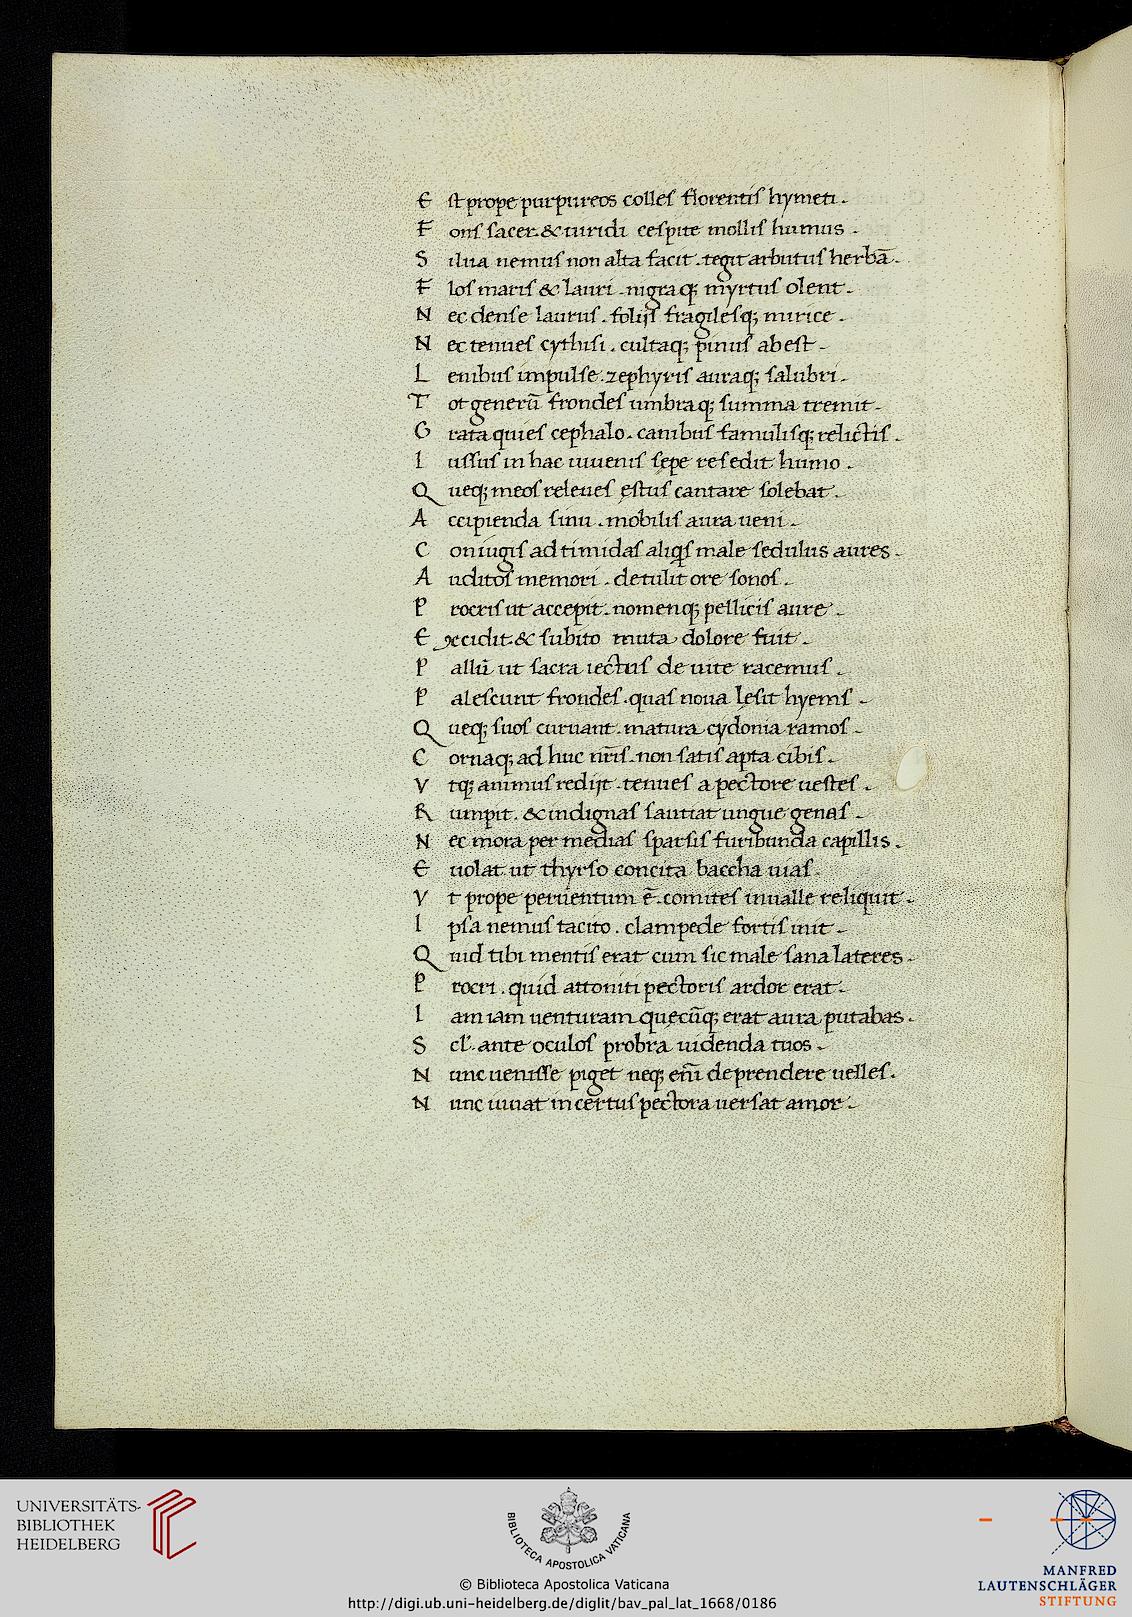 E st prope purpureos colles florentis hymeti .
F ons sacer . & uiridi cespite mollis humus .
S ilua nemus non alta facit . tegit arbutus herbā .
F los maris & lauri . nigraq; myrtus olent .
N ec dense laurus . folijs fragilesq; mirice .
N ec tenues cythisi . cultaq; pinus abest .
L enibus impulse . zephyris auraq; salubri .
T ot generū frondes umbraq; summa tremit .
G rata quies cephalo . canibus famulisq; relictis .
I ussus in hac iuuenis sepe resedit humo .
Q ueq; meos releues ęstus cantare solebat .
A ccipienda sinu . mobilis aura ueni .
C oniugis ad timidas aliq̄s male sedulus aures .
A uditos memori . detulit ore sonos .
P rocris ut accepit . nomenq; pellicis aure .
E xcidit . & subito muta dolore fuit .
P allū ut sacra iectus de uite racemus .
P alescunt frondes . quas noua lesit hyems .
Q ueq; suos curuant . matura cydonia ramos .
C ornaq; ad huc nr̄is . non satis apta cibis .
V tq; animus redijt . tenues a pectore uestes .
R umpit . & indignas sautiat ungue genas .
N ec mora per medias sparsis furibunda capillis .
E uolat ut thyrso concita baccha uias .
V t prope peruentum ē . comites in ualle reliquit .
I psa nemus tacito . clampede fortis init .
Q uid tibi mentis erat cum sic male sana lateres .
P rocri . quid attoniti pectoris ardor erat .
I am iam uenturam quęcūq; erat aura putabas .
S cl' . ante oculos probra uidenda tuos .
N unc uenisse piget neq; enī deprendere uelles .
N unc iuuat incertus pectora uersat amor .
UNIVERSITÄTS-
BIBLIOTHEK
HEIDELBERG
BIBLIOTECA APOSTOLICA VATICANA
MANFRED
LAUTENSCHLÄGER
STIFTUNG
© Biblioteca Apostolica Vaticana
http://digi.ub.uni-heidelberg.de/diglit/bav_pal_lat_1668/0186